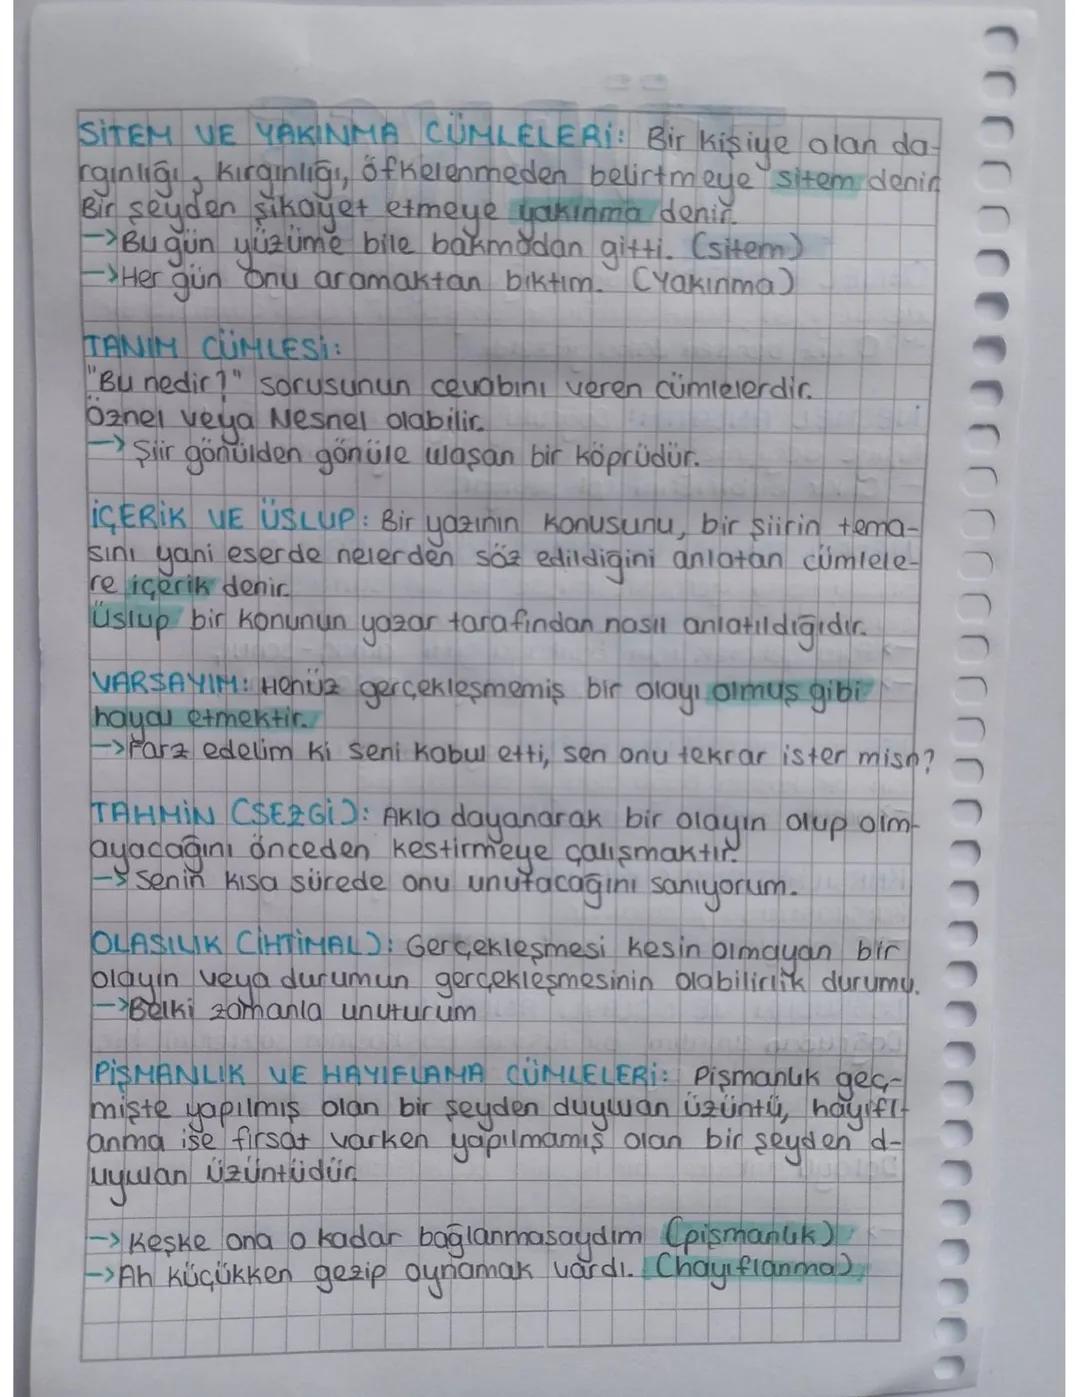 SİTEM VE YAKINMA CÜMLELERİ: Bir kişiye olan da-
rgınlığı, kırgınlığı, öfkelenmeden belirtmeye sitem denir
Bir şeyden şikayet etmeye yakınma denir.
→Bugün yüzüme bile bakmadan gitti. (sitem)
→Her gün onu aramaktan bıktım. (Yakınma)
TANIM CÜMLESİ:
"Bu nedir?" sorusunun cevabını veren cümlelerdir.
Öznel veya Nesnel olabilir.
→ Şiir gönülden gönüle ulaşan bir köprüdür.
İÇERİK VE ÜSLUP: Bir yazının konusunu, bir şiirin tema-
sını yani eserde nelerden söz edildiğini anlatan cümlele-
re içerik denir.
Üslup bir konunun yazar tarafından nasıl anlatıldığıdır.
VARSAYIM: Henüz gerçekleşmemiş bir olayı olmuş gibi
hayal etmektir.
→Farz edelim ki seni kabul etti, sen onu tekrar ister misn?
TAHMİN (SEZGİ): Akla dayanarak bir olayın olup olm-
ayacağını önceden kestirmeye çalışmaktır.
→ Senin kısa sürede onu unutacağını sanıyorum.
OLASILIK (İHTİMAL): Gerçekleşmesi kesin olmayan bir
olayın veya durumun gerçekleşmesinin olabilirlik durumu.
→Belki zamanla unuturum
PİŞMANLIK VE HAYIFLAMA CÜMLELERİ: Pişmanlık geç-
mişte yapılmış olan bir şeyden duyulan üzüntü, hayıfl-
anma ise fırsat varken yapılmamış olan bir şeyden d-
uyulan üzüntüdür.
→ Keşke ona o kadar bağlanmasaydım (pişmanlık)
→Ah küçükken gezip oynamak vardı. (hayıflanma)